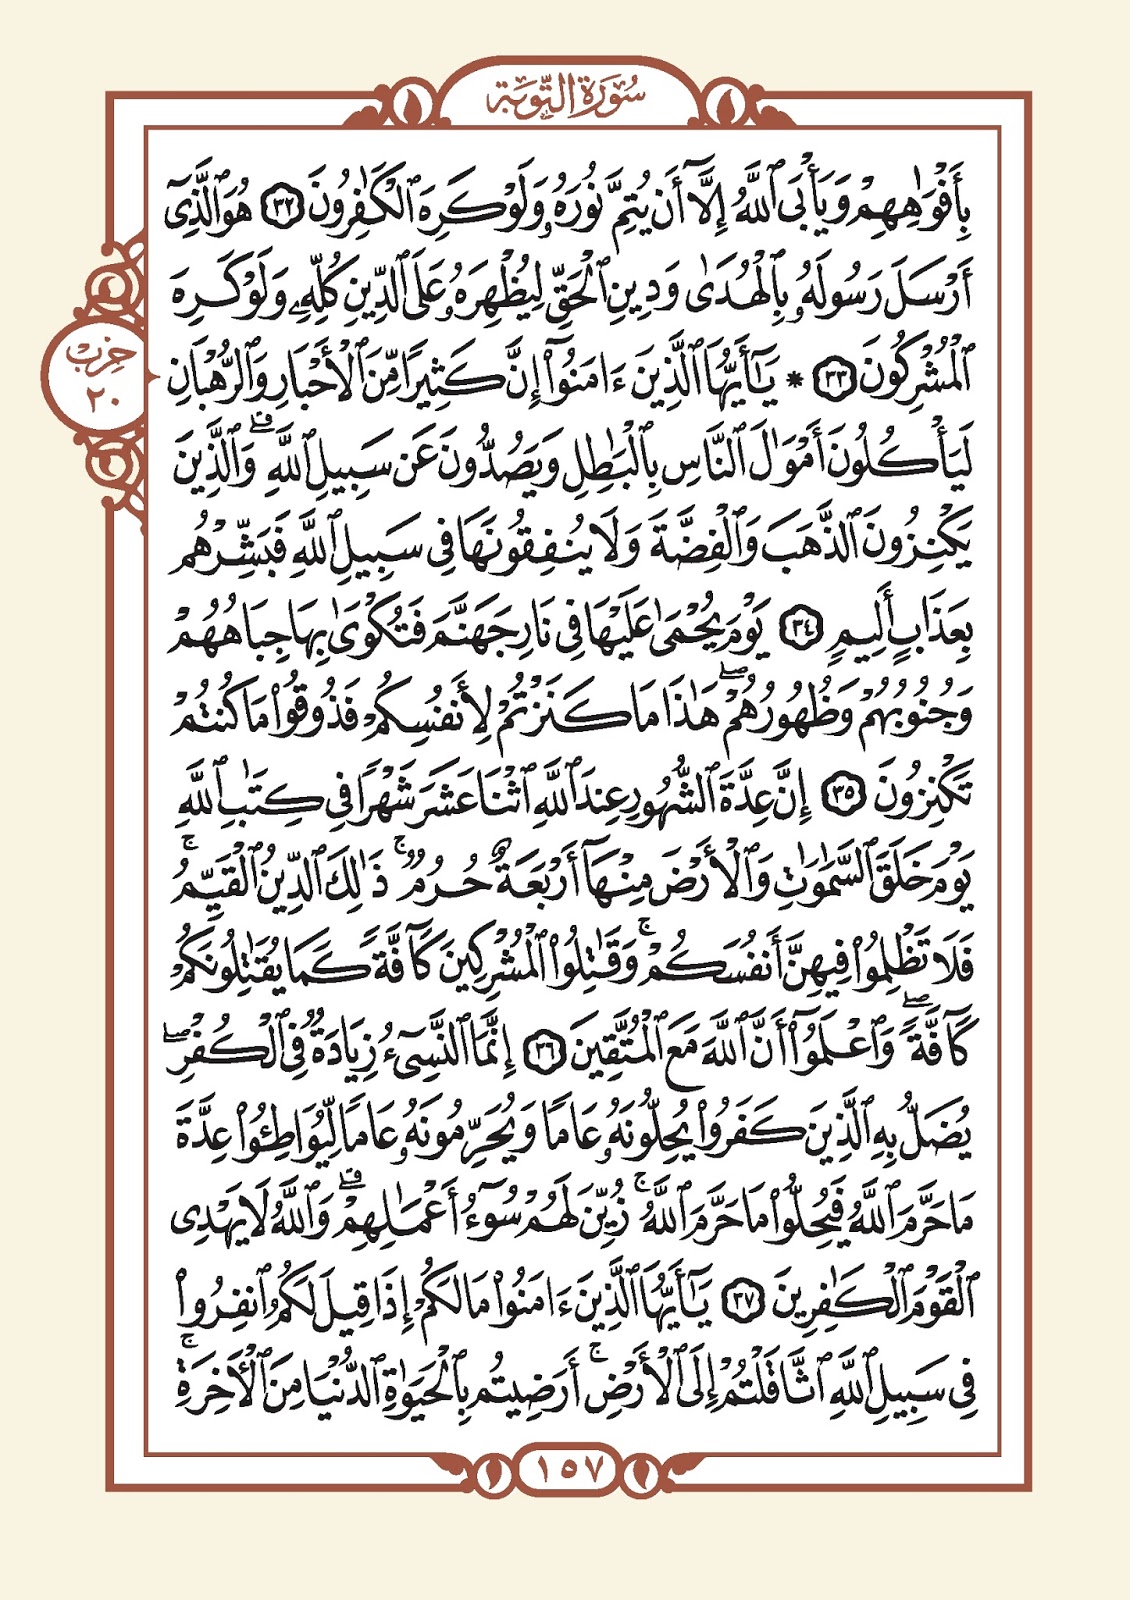 سُورَةُ التَّوْبَةِ
بِأَفْوَٰهِهِمْ وَيَأْبَى ٱللَّهُ إِلَّآ أَن يُتِمَّ نُورَهُۥ وَلَوْ كَرِهَ ٱلْكَٰفِرُونَ ٣٢ هُوَ ٱلَّذِىٓ
أَرْسَلَ رَسُولَهُۥ بِٱلْهُدَىٰ وَدِينِ ٱلْحَقِّ لِيُظْهِرَهُۥ عَلَى ٱلدِّينِ كُلِّهِۦ وَلَوْ كَرِهَ
حِزْب
٢٠
ٱلْمُشْرِكُونَ ٣٣ * يَٰٓأَيُّهَا ٱلَّذِينَ ءَامَنُوٓا۟ إِنَّ كَثِيرًا مِّنَ ٱلْأَحْبَارِ وَٱلرُّهْبَانِ
لَيَأْكُلُونَ أَمْوَٰلَ ٱلنَّاسِ بِٱلْبَٰطِلِ وَيَصُدُّونَ عَن سَبِيلِ ٱللَّهِ ۗ وَٱلَّذِينَ
يَكْنِزُونَ ٱلذَّهَبَ وَٱلْفِضَّةَ وَلَا يُنفِقُونَهَا فِى سَبِيلِ ٱللَّهِ فَبَشِّرْهُم
بِعَذَابٍ أَلِيمٍ ٣٤ يَوْمَ يُحْمَىٰ عَلَيْهَا فِى نَارِ جَهَنَّمَ فَتُكْوَىٰ بِهَا جِبَاهُهُمْ
وَجُنُوبُهُمْ وَظُهُورُهُمْ ۖ هَٰذَا مَا كَنَزْتُمْ لِأَنفُسِكُمْ فَذُوقُوا۟ مَا كُنتُمْ
تَكْنِزُونَ ٣٥ إِنَّ عِدَّةَ ٱلشُّهُورِ عِندَ ٱللَّهِ ٱثْنَا عَشَرَ شَهْرًا فِى كِتَٰبِ ٱللَّهِ
يَوْمَ خَلَقَ ٱلسَّمَٰوَٰتِ وَٱلْأَرْضَ مِنْهَآ أَرْبَعَةٌ حُرُمٌ ۚ ذَٰلِكَ ٱلدِّينُ ٱلْقَيِّمُ ۚ
فَلَا تَظْلِمُوا۟ فِيهِنَّ أَنفُسَكُمْ ۚ وَقَٰتِلُوا۟ ٱلْمُشْرِكِينَ كَآفَّةً كَمَا يُقَٰتِلُونَكُمْ
كَآفَّةً ۖ وَٱعْلَمُوٓا۟ أَنَّ ٱللَّهَ مَعَ ٱلْمُتَّقِينَ ٣٦ إِنَّمَا ٱلنَّسِىٓءُ زِيَادَةٌ فِى ٱلْكُفْرِ ۖ
يُضَلُّ بِهِ ٱلَّذِينَ كَفَرُوا۟ يُحِلُّونَهُۥ عَامًا وَيُحَرِّمُونَهُۥ عَامًا لِّيُوَاطِـُٔوا۟ عِدَّةَ
مَا حَرَّمَ ٱللَّهُ فَيُحِلُّوا۟ مَا حَرَّمَ ٱللَّهُ ۚ زُيِّنَ لَهُمْ سُوٓءُ أَعْمَٰلِهِمْ ۗ وَٱللَّهُ لَا يَهْدِى
ٱلْقَوْمَ ٱلْكَٰفِرِينَ ٣٧ يَٰٓأَيُّهَا ٱلَّذِينَ ءَامَنُوا۟ مَا لَكُمْ إِذَا قِيلَ لَكُمُ ٱنفِرُوا۟
فِى سَبِيلِ ٱللَّهِ ٱثَّاقَلْتُمْ إِلَى ٱلْأَرْضِ ۚ أَرَضِيتُم بِٱلْحَيَوٰةِ ٱلدُّنْيَا مِنَ ٱلْءَاخِرَةِ ۚ
١٥٧